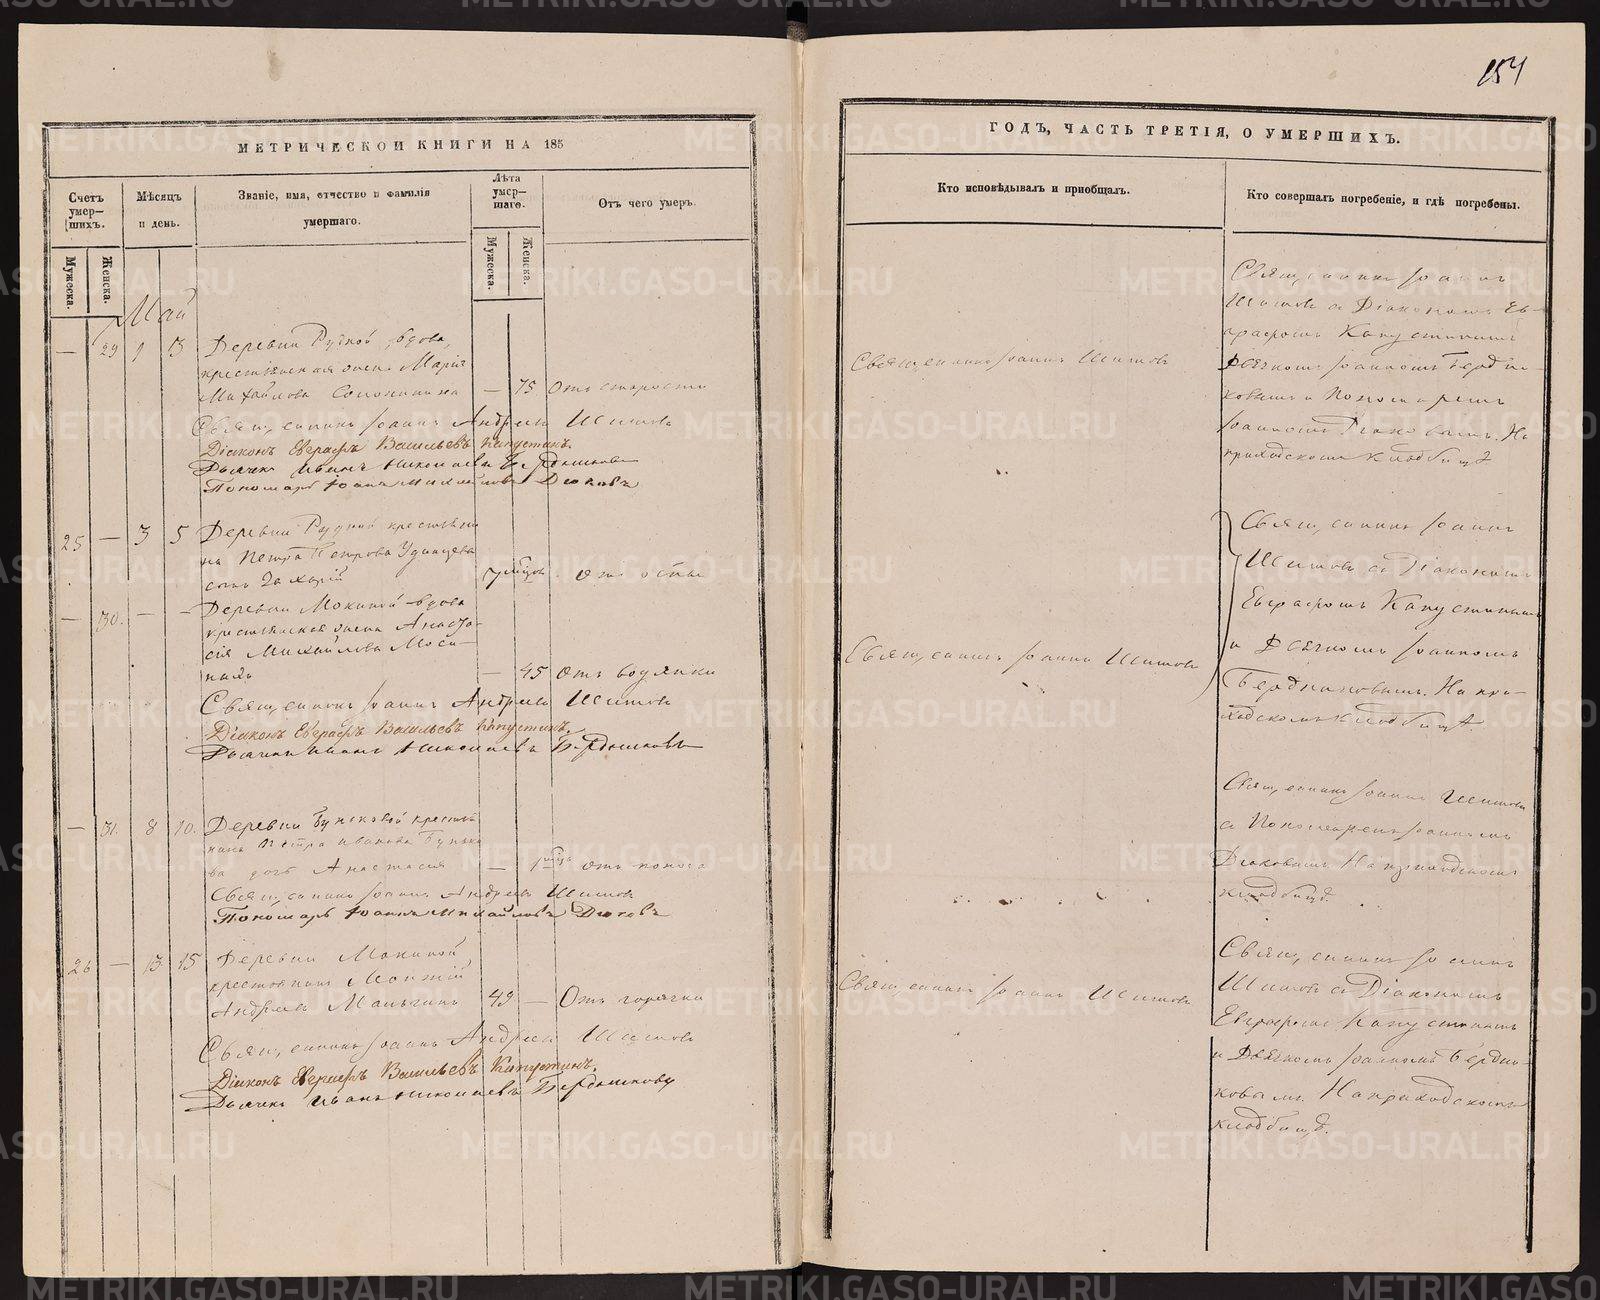 154
МЕТРИЧЕСКОЙ КНИГИ НА 185
Счетъ умер-шихъ.
Мѣсяцъ и день.
Званіе, имя, отчество и фамилія умершаго.
Лѣта умер-шаго.
Отъ чего умеръ.
Мужеска.
Женска.
Мужеска.
Женска.
Май
— 29 1 3 Деревни Рудной вдова,
крестьянская жена Марія
Михайлова — 75 Отъ старости
Священникъ Іоаннъ Андреевъ Шишовъ
Діаконъ Евграфъ Васильевъ Капустинъ.
Дьячекъ Иванъ Николаевъ Бердышковъ
Пономарь Іоаннъ Михайловъ Дюковъ
25 — 3 5 Деревни Рудной крестьяни-
на Петра Петрова Удинцева
сынъ Захарій 7 мѣсяц. отъ оспы
— 30. — — Деревни Мокиной вдова
крестьянская жена Анаста-
сія Михайлова Моси-
ныхъ — 45 Отъ водянки
Священникъ Іоаннъ Андреевъ Шишовъ
Діаконъ Евграфъ Васильевъ Капустинъ.
Дьячекъ Иванъ Николаевъ Бердышковъ
— 31. 8 10. Деревни Бунковой крестья-
нина Петра Иванова Бунко-
ва дочь Анастасія — 1 мѣсяц. отъ поноса
Священникъ Іоаннъ Андреевъ Шишовъ
Пономарь Іоаннъ Михайловъ Дюковъ
26 — 13. 15 Деревни Мокиной
крестьянинъ
Андреевъ Мальгинъ 49 — Отъ горячки
Священникъ Іоаннъ Андреевъ Шишовъ
Діаконъ Евграфъ Васильевъ Капустинъ.
Дьячекъ Иванъ Николаевъ Бердышковъ
ГОДЪ, ЧАСТЬ ТРЕТІЯ, О УМЕРШИХЪ.
Кто исповѣдывалъ и пріобщалъ.
Кто совершалъ погребеніе, и гдѣ погребены.
Священникъ Іоаннъ Шишовъ
Священникъ Іоаннъ
Шишовъ съ Діакономъ Ев-
графомъ Капустинымъ
Дьячкомъ Іоанномъ Берды-
ковымъ и Пономаремъ
Іоанномъ Дюковымъ. На
приходскомъ кладбищѣ
Священникъ Іоаннъ Шишовъ
Священникъ Іоаннъ
Шишовъ съ Діакономъ
Евграфомъ Капустинымъ
и Дьячкомъ Іоанномъ
Бердниковымъ. На при-
ходскомъ кладбищѣ.
Священникъ Іоаннъ Шишовъ
съ Пономаремъ Іоанномъ
Дюковымъ На приходскомъ
кладбищѣ.
Священникъ Іоаннъ Шишовъ
Священникъ Іоаннъ
Шишовъ съ Діакономъ
Евграфомъ Капустинымъ
и Дьячкомъ Іоанномъ Бердни-
ковымъ. На приходскомъ
кладбищѣ.
METRIKI.GASO-URAL.RU